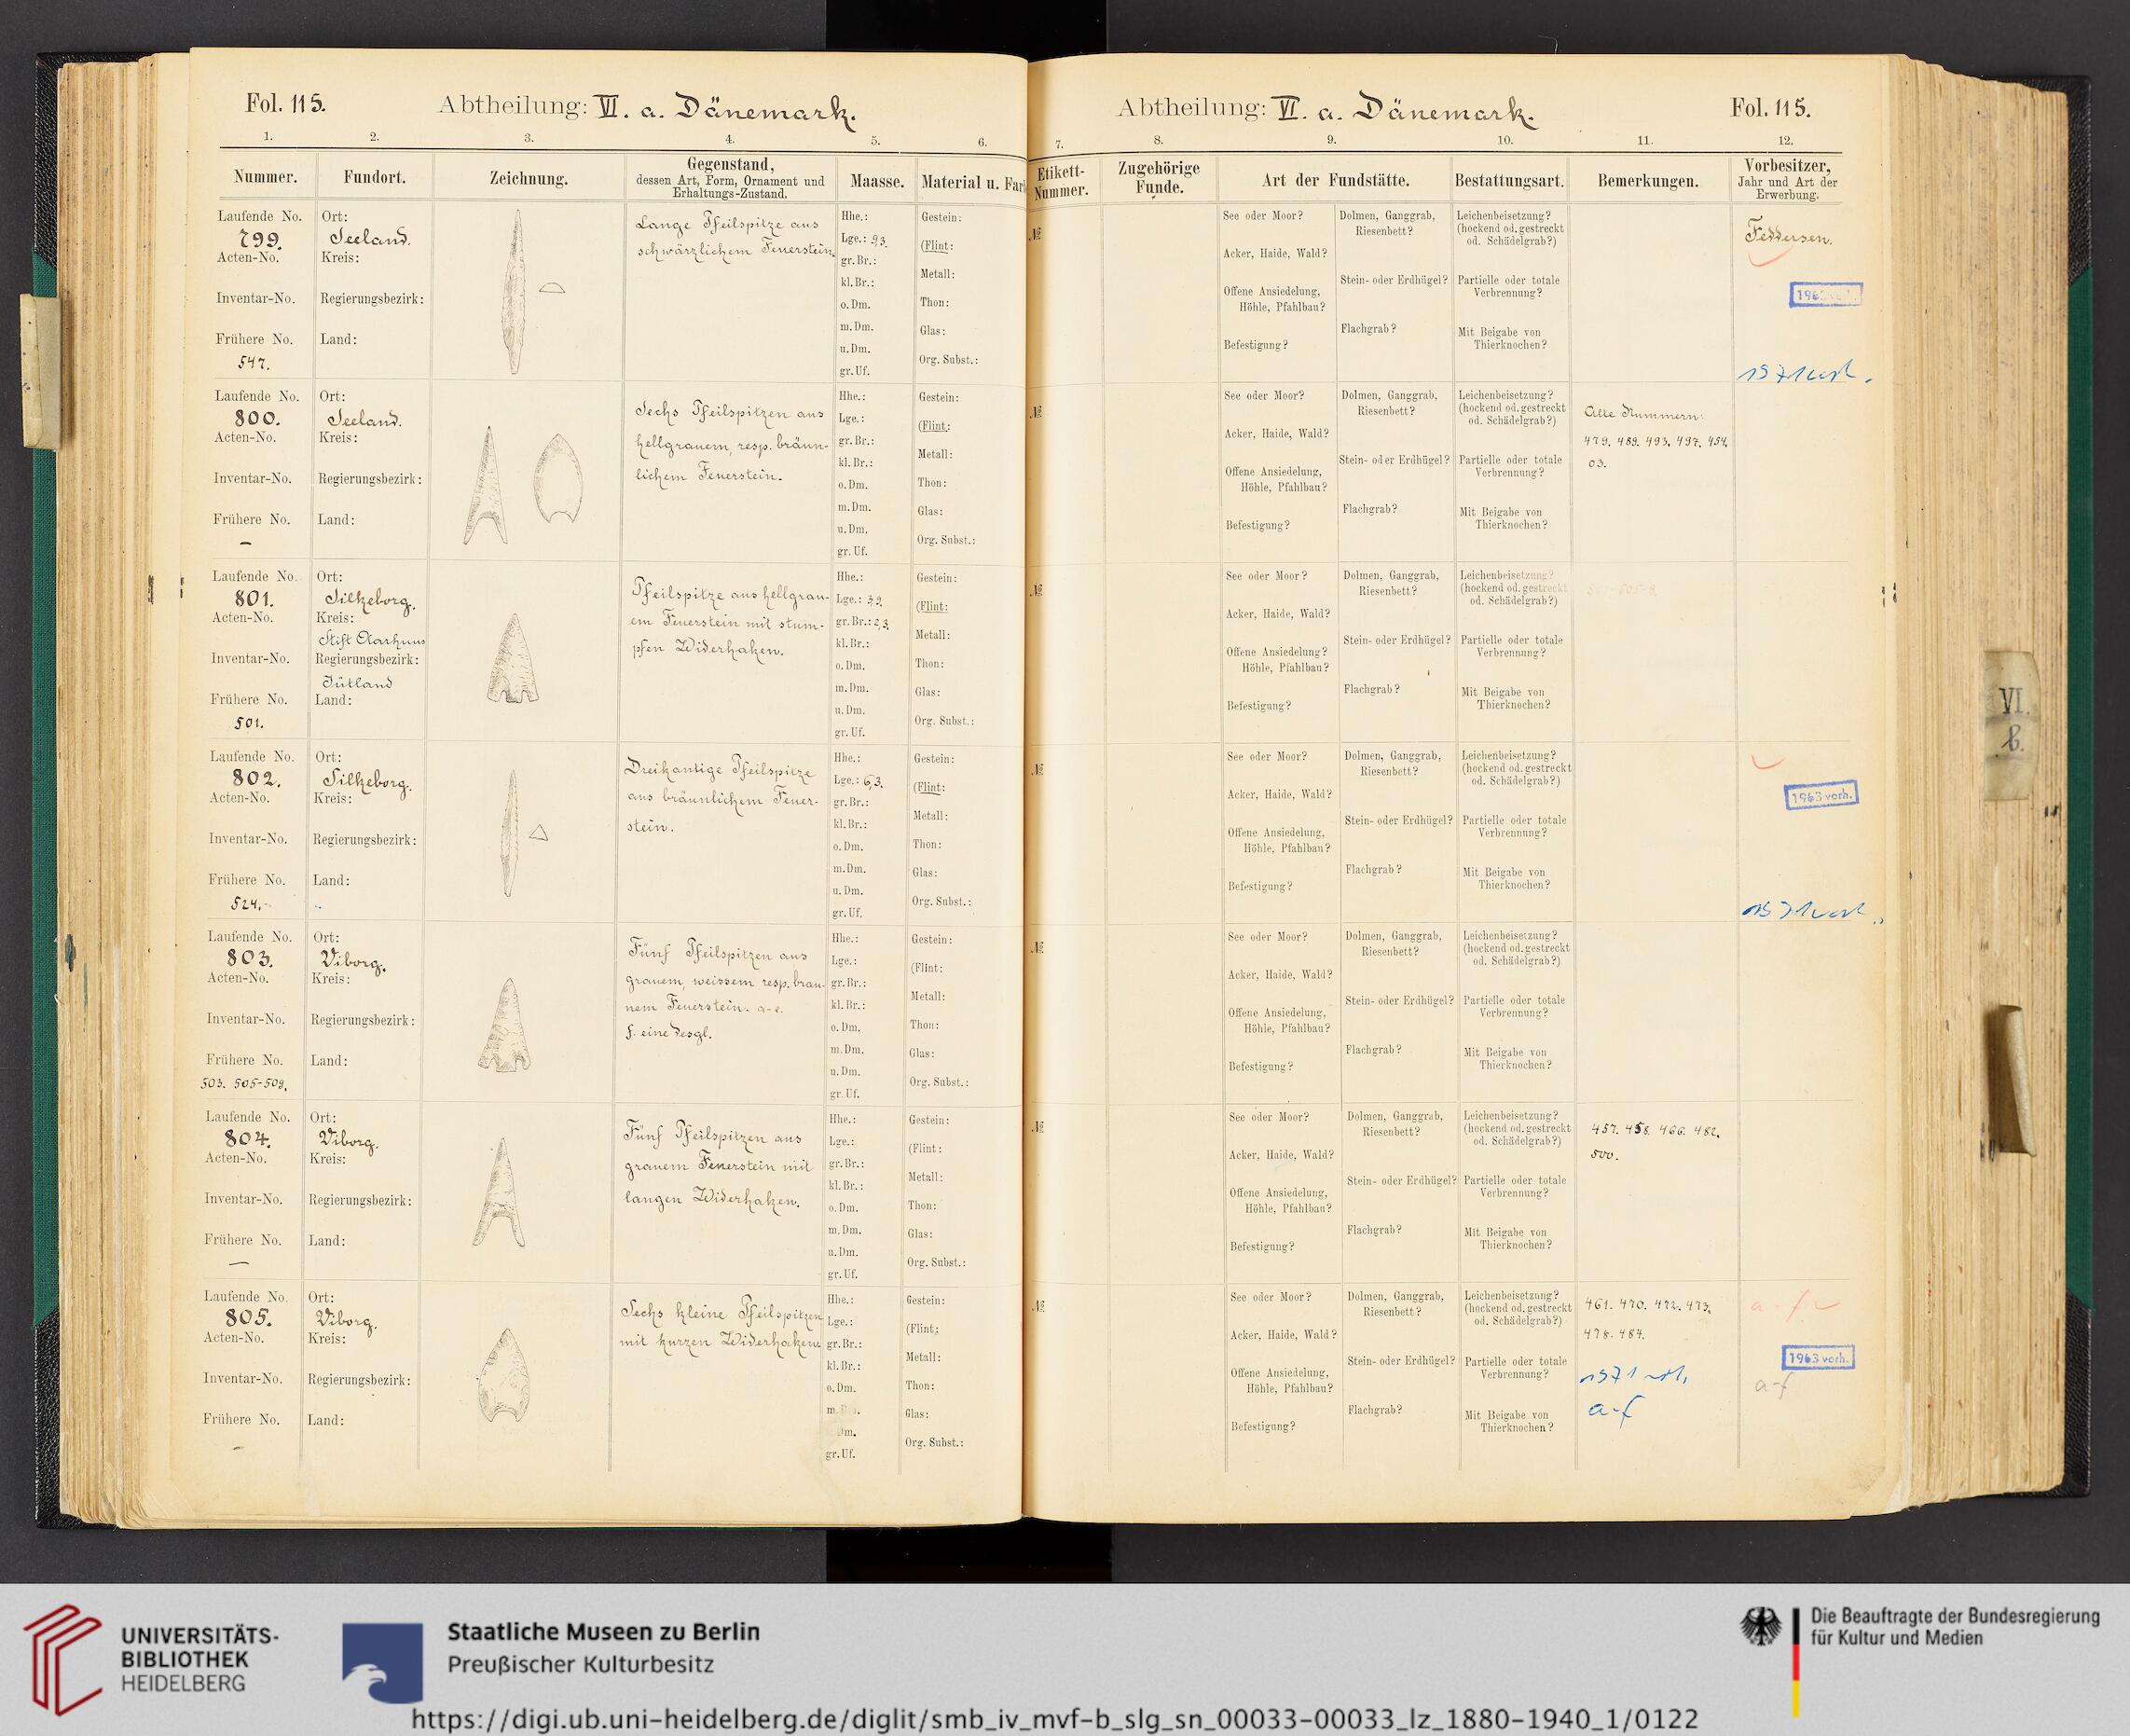 Fol. 115.
Abtheilung: VI. a. Dänemark.
1. 2. 3. 4. 5. 6.
Nummer.
Fundort.
Zeichnung.
Gegenstand,
dessen Art, Form, Ornament und
Erhaltungs-Zustand.
Maasse.
Material u. Far
Laufende No.
799.
Acten-No.
Inventar-No.
Frühere No.
547.
Ort:
Seeland.
Kreis:
Regierungsbezirk:
Land:
Lange Pfeilspitze aus
schwärzlichem Feuerstein.
Hhe.:
Lge.: 9,3.
gr. Br.:
kl. Br.:
o. Dm.
m. Dm.
u. Dm.
gr. Uf.
Gestein:
(Flint:
Metall:
Thon:
Glas:
Org. Subst.:
Laufende No.
800.
Acten-No.
Inventar-No.
Frühere No.
–
Ort:
Seeland.
Kreis:
Regierungsbezirk:
Land:
Sechs Pfeilspitzen aus
hellgrauem, resp. bräun-
lichem Feuerstein.
Hhe.:
Lge.:
gr. Br.:
kl. Br.:
o. Dm.
m. Dm.
u. Dm.
gr. Uf.
Gestein:
(Flint:
Metall:
Thon:
Glas:
Org. Subst.:
Laufende No.
801.
Acten-No.
Inventar-No.
Frühere No.
501.
Ort:
Silkeborg.
Kreis:
Stift Aarhuus
Regierungsbezirk:
Jütland
Land:
Pfeilspitze aus hellgrau-
em Feuerstein mit stum-
pfen Widerhaken.
Hhe.:
Lge.: 3,9.
gr. Br.: 2,3.
kl. Br.:
o. Dm.
m. Dm.
u. Dm.
gr. Uf.
Gestein:
(Flint:
Metall:
Thon:
Glas:
Org. Subst.:
Laufende No.
802.
Acten-No.
Inventar-No.
Frühere No.
524.
Ort:
Silkeborg.
Kreis:
Regierungsbezirk:
Land:
Dreikantige Pfeilspitze
aus bräunlichem Feuer-
stein.
Hhe.:
Lge.: 6,3.
gr. Br.:
kl. Br.:
o. Dm.
m. Dm.
u. Dm.
gr. Uf.
Gestein:
(Flint:
Metall:
Thon:
Glas:
Org. Subst.:
Laufende No.
803.
Acten-No.
Inventar-No.
Frühere No.
503. 505-508.
Ort:
Viborg.
Kreis:
Regierungsbezirk:
Land:
Fünf Pfeilspitzen aus
grauem, weissem resp. brau-
nem Feuerstein. a-e.
f. eine desgl.
Hhe.:
Lge.:
gr. Br.:
kl. Br.:
o. Dm.
m. Dm.
u. Dm.
gr. Uf.
Gestein:
(Flint:
Metall:
Thon:
Glas:
Org. Subst.:
Laufende No.
804.
Acten-No.
Inventar-No.
Frühere No.
—
Ort:
Viborg.
Kreis:
Regierungsbezirk:
Land:
Fünf Pfeilspitzen aus
grauem Feuerstein mit
langen Widerhaken.
Hhe.:
Lge.:
gr. Br.:
kl. Br.:
o. Dm.
m. Dm.
u. Dm.
gr. Uf.
Gestein:
(Flint:
Metall:
Thon:
Glas:
Org. Subst.:
Laufende No.
805.
Acten-No.
Inventar-No.
Frühere No.
–
Ort:
Viborg.
Kreis:
Regierungsbezirk:
Land:
Sechs kleine Pfeilspitzen
mit kurzen Widerhaken.
Hhe.:
Lge.:
gr. Br.:
kl. Br.:
o. Dm.
m.
Dm.
gr. Uf.
Gestein:
(Flint:
Metall:
Thon:
Glas:
Org. Subst.:
Abtheilung: VI. a. Dänemark.
Fol. 115.
7. 8. 9. 10. 11. 12.
Etikett-
Nummer.
Zugehörige
Funde.
Art der Fundstätte.
Bestattungsart.
Bemerkungen.
Vorbesitzer,
Jahr und Art der
Erwerbung.
№
See oder Moor?
Acker, Haide, Wald?
Offene Ansiedelung,
Höhle, Pfahlbau?
Befestigung?
Dolmen, Ganggrab,
Riesenbett?
Stein- oder Erdhügel?
Flachgrab?
Leichenbeisetzung?
(hockend od. gestreckt
od. Schädelgrab?)
Partielle oder totale
Verbrennung?
Mit Beigabe von
Thierknochen?
Feddersen.
1971 vorh.
№
See oder Moor?
Acker, Haide, Wald?
Offene Ansiedelung,
Höhle, Pfahlbau?
Befestigung?
Dolmen, Ganggrab,
Riesenbett?
Stein- oder Erdhügel?
Flachgrab?
Leichenbeisetzung?
(hockend od. gestreckt
od. Schädelgrab?)
Partielle oder totale
Verbrennung?
Mit Beigabe von
Thierknochen?
Alte Nummern:
479. 489. 493. 497. 454.
03.
№
See oder Moor?
Acker, Haide, Wald?
Offene Ansiedelung?
Höhle, Pfahlbau?
Befestigung?
Dolmen, Ganggrab,
Riesenbett?
Stein- oder Erdhügel?
Flachgrab?
Leichenbeisetzung?
(hockend od. gestreckt
od. Schädelgrab?)
Partielle oder totale
Verbrennung?
Mit Beigabe von
Thierknochen?
№
See oder Moor?
Acker, Haide, Wald?
Offene Ansiedelung,
Höhle, Pfahlbau?
Befestigung?
Dolmen, Ganggrab,
Riesenbett?
Stein- oder Erdhügel?
Flachgrab?
Leichenbeisetzung?
(hockend od. gestreckt
od. Schädelgrab?)
Partielle oder totale
Verbrennung?
Mit Beigabe von
Thierknochen?
1963 vorh.
1971 vorh.
№
See oder Moor?
Acker, Haide, Wald?
Offene Ansiedelung,
Höhle, Pfahlbau?
Befestigung?
Dolmen, Ganggrab,
Riesenbett?
Stein- oder Erdhügel?
Flachgrab?
Leichenbeisetzung?
(hockend od. gestreckt
od. Schädelgrab?)
Partielle oder totale
Verbrennung?
Mit Beigabe von
Thierknochen?
№
See oder Moor?
Acker, Haide, Wald?
Offene Ansiedelung,
Höhle, Pfahlbau?
Befestigung?
Dolmen, Ganggrab,
Riesenbett?
Stein- oder Erdhügel?
Flachgrab?
Leichenbeisetzung?
(hockend od. gestreckt
od. Schädelgrab?)
Partielle oder totale
Verbrennung?
Mit Beigabe von
Thierknochen?
457. 458. 466. 482.
500.
№
See oder Moor?
Acker, Haide, Wald?
Offene Ansiedelung,
Höhle, Pfahlbau?
Befestigung?
Dolmen, Ganggrab,
Riesenbett?
Stein- oder Erdhügel?
Flachgrab?
Leichenbeisetzung?
(hockend od. gestreckt
od. Schädelgrab?)
Partielle oder totale
Verbrennung?
Mit Beigabe von
Thierknochen?
461. 470. 472. 473.
478. 487.
1971 vorh.
a-f
a-f
1963 vorh.
a-f
VI.
b.
UNIVERSITÄTS-
BIBLIOTHEK
HEIDELBERG
Staatliche Museen zu Berlin
Preußischer Kulturbesitz
Die Beauftragte der Bundesregierung
für Kultur und Medien
https://digi.ub.uni-heidelberg.de/diglit/smb_iv_mvf-b_slg_sn_00033-00033_lz_1880-1940_1/0122